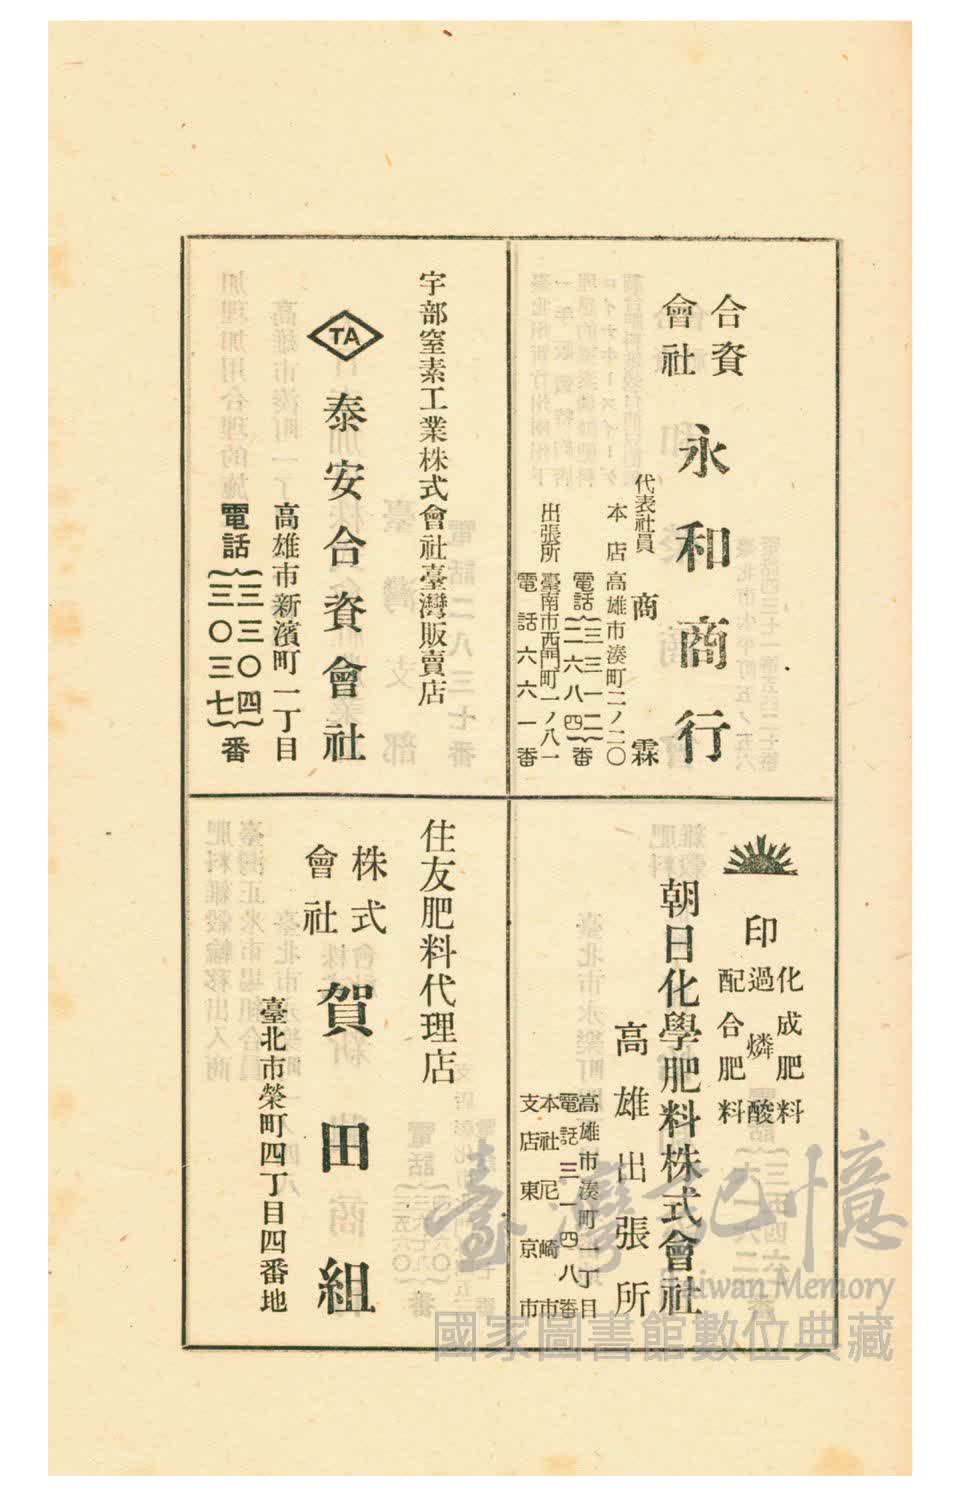 合資
會社
永和商行
代表社員 商霖
本店 高雄市湊町二ノ二〇
電話{三三一二 二六八四}番
出張所 臺南市西門町一ノ八一
電話六六一番
宇部窒素工業株式會社臺灣販賣店
TA
泰安合資會社
高雄市新濱町一丁目
電話{三三〇四 三〇三七}番
印
化成肥料
過燐酸
配合肥料
朝日化學肥料株式會社
高雄出張所
高雄市湊町一丁目
電話三一四八番
本社尼崎市
支店東京市
住友肥料代理店
株式
會社
賀田組
臺北市榮町四丁目四番地
臺灣記憶
Taiwan Memory
國家圖書館數位典藏